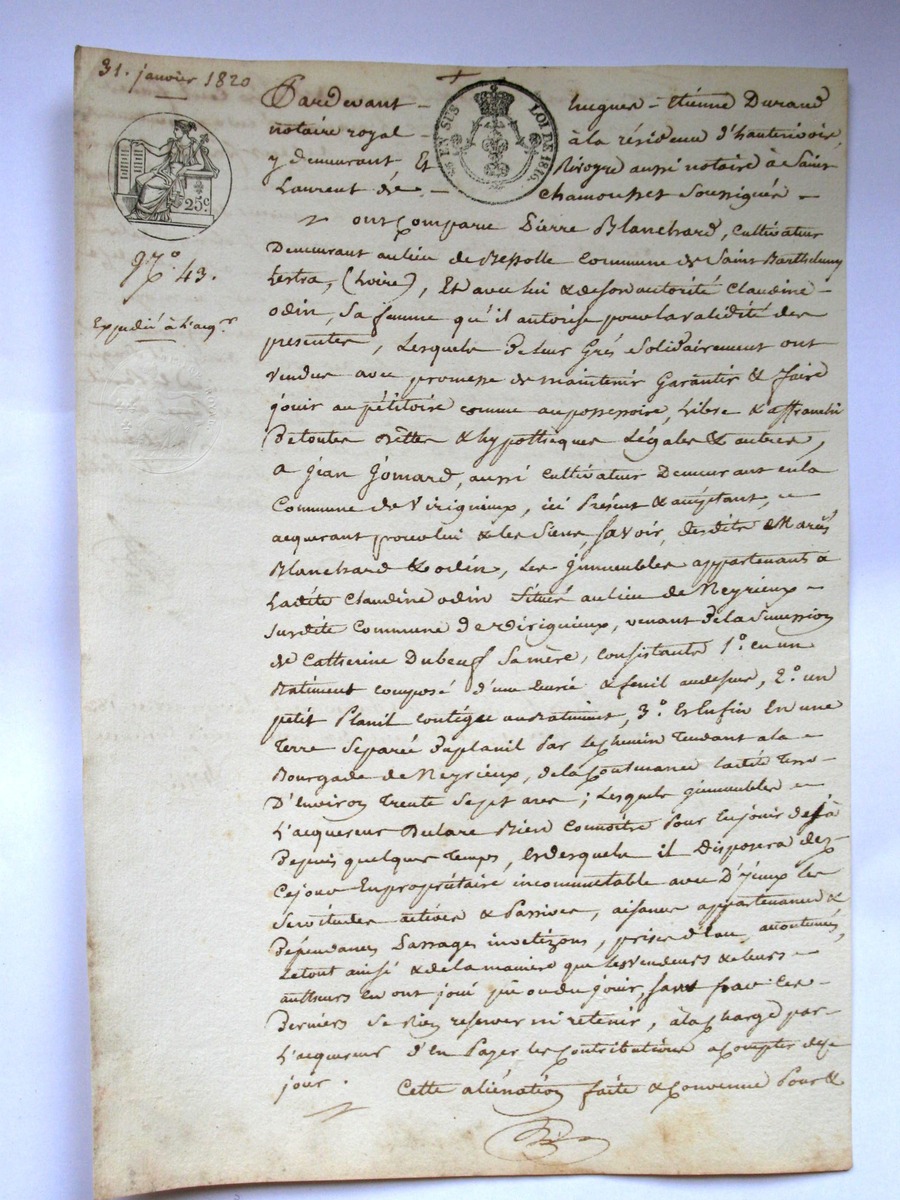 31. janvier 1820
Pardevant - hugues - Etienne Durand
notaire royal - à la résidence d'hauterivoire,
y demeurant Et Rivoyre aussi notaire à Saint
Laurent de - Chamousset Soussignés -
25 EN SUS LOI DE 1816.
25c.
N.° 43.
Expédié à l'acq.r
ont Comparu Pierre Blanchard, Cultivateur
Demeurant au lieu de Bessolle Commune de Saint Barthelemy
Lestra, (Loire), Et avec lui & de son autorité Claudine -
odin, Sa femme qu'il autorise pour la validité des
presentes, Lesquels de leur Grés Solidairement ont
vendus avec promesse de maintenir Garantir & faire
jouir au pétitoire comme au possessoire, Libre & affranchi
De toutes Dettes & hypothèques Légales & autres,
a jean jomard, aussi Cultivateur Demeurant en la
Commune de Virigneux, ici Present & acceptant, -
acquerant pour lui & les Siens, Savoir, desdits Mariés
Blanchard & odin, Les jmmeubles appartenants à
Ladite Claudine odin Situés au lieu de Neyrieux -
Surdite Commune de Virigneux, venant de la Succession
de Catherine Dubeuf Sa mère, Consistants 1.° en un
Batiment composé d'une & fenil au dessus, 2.° un
petit Planil contigu au batiment, 3.° Et Enfin En une
Terre Separée du planil Par le chemin Tendant a la -
Bourgade de Neyrieux, de la Contenance ladite Terre
D'environ Trente Sept ares; Lesquels jmmeubles -
L'acquereur Declare Bien Connoitre Pour En jouir deja
Depuis quelques Temps, Et desquels il Disposera dez
Ce jour En propriétaire incommutable avec D'jceux les
Servitudes actives & Passives, aisances appartenances &
Dépendances Passages, prises d'Eau accoutumés,
Le tout ainsi & de la manière que les vendeurs & leurs -
autheurs En ont joui pû ou du jouir, Sans Par les
Derniers Se Rien reserver ni retenir, à la Charge par -
L'acquereur d'En Payer les Contributions a Compter de ce
jour. Cette aliénation faite & Convenue Pour &